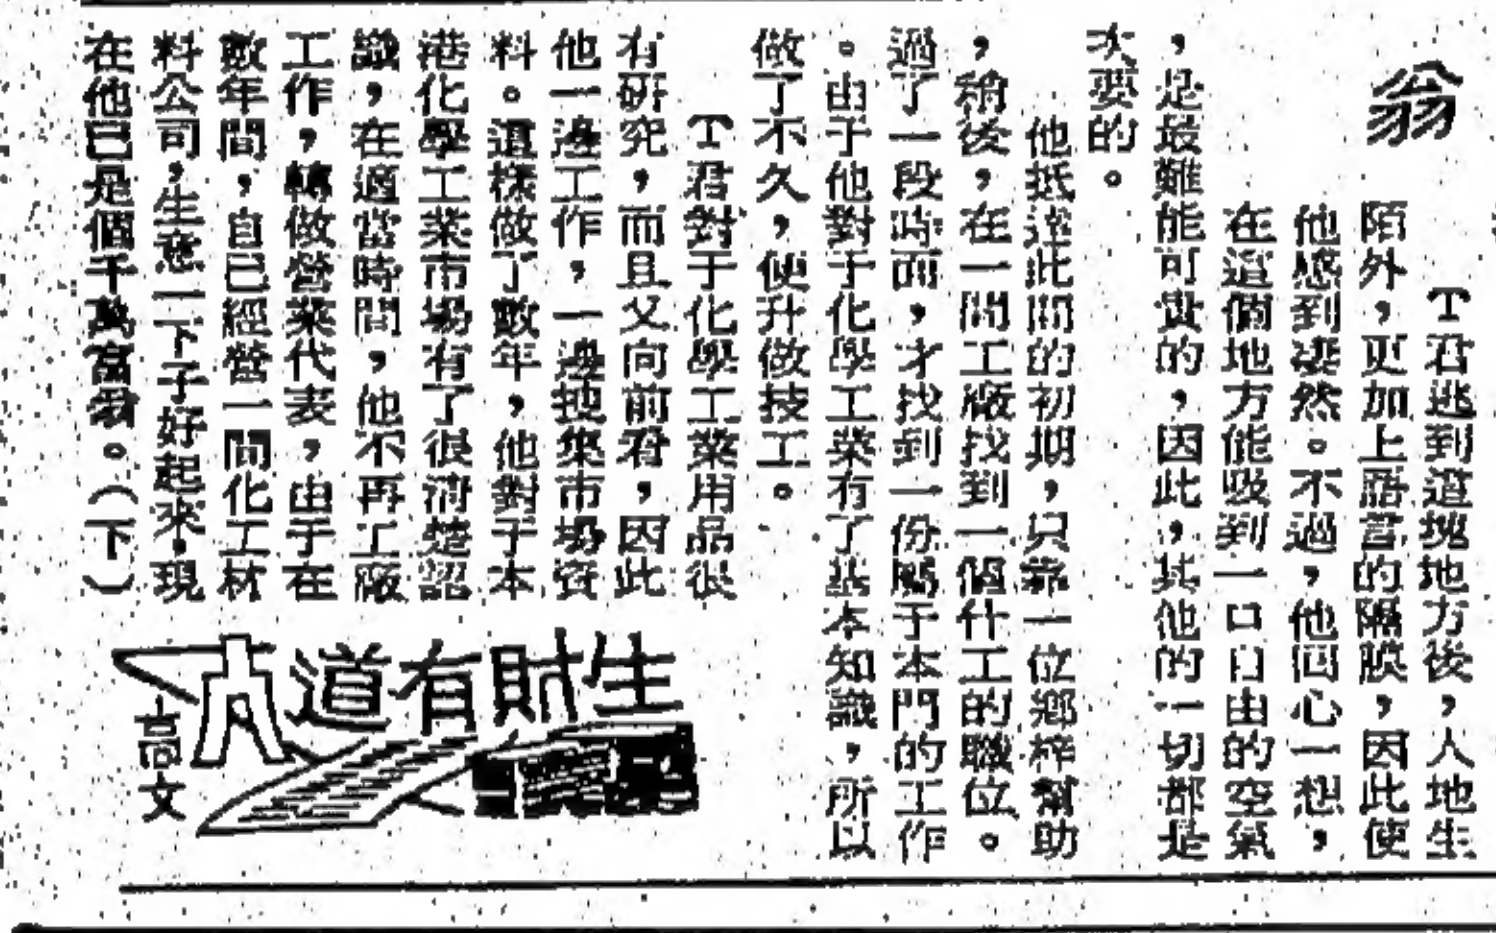 翁
T君逃到這塊地方後，人地生
陌外，更加上語言的隔膜，因此使
他感到凄然。不過，他回心一想，
在這個地方能吸到一口自由的空氣
，是最難能可貴的，因此，其他的一切都是
次要的。
他抵達此間的初期，只靠一位鄉梓幫助
，稍後，在一間工廠找到一個什工的職位。
過了一段時間，才找到一份屬于本門的工作
。由于他對于化學工業有了基本知識，所以
做了不久，便升做技工。
T君對于化學工業用品很
有研究，而且又向前看，因此
他一邊工作，一邊搜集市場資
料。這樣做了數年，他對于本
港化學工業市場有了很清楚認
識，在適當時間，他不再工廠
工作，轉做營業代表，由于在
數年間，自己經營一間化工材
料公司，生意一下子好起來，現
在他已是個千萬富翁。（下）
生財有道
高文